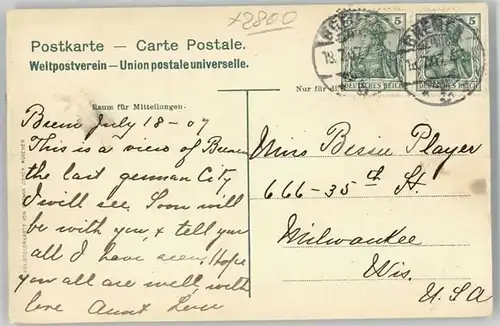 x2800
Postkarte – Carte Postale.
Weltpostverein – Union postale universelle.
5 5
DEUTSCHES REICH DEUTSCHES REICH
Nur für di
Raum für Mitteilungen.
Brem July 18 - 07
This is a view of Bremen
the last german City
I will see. Soon will
be with you, & tell you
all I have seen. Hope
you all are well, with
love Aunt
Miss Bessie Player
666-35th St.
Milwaukee
Wis.
U.S.A